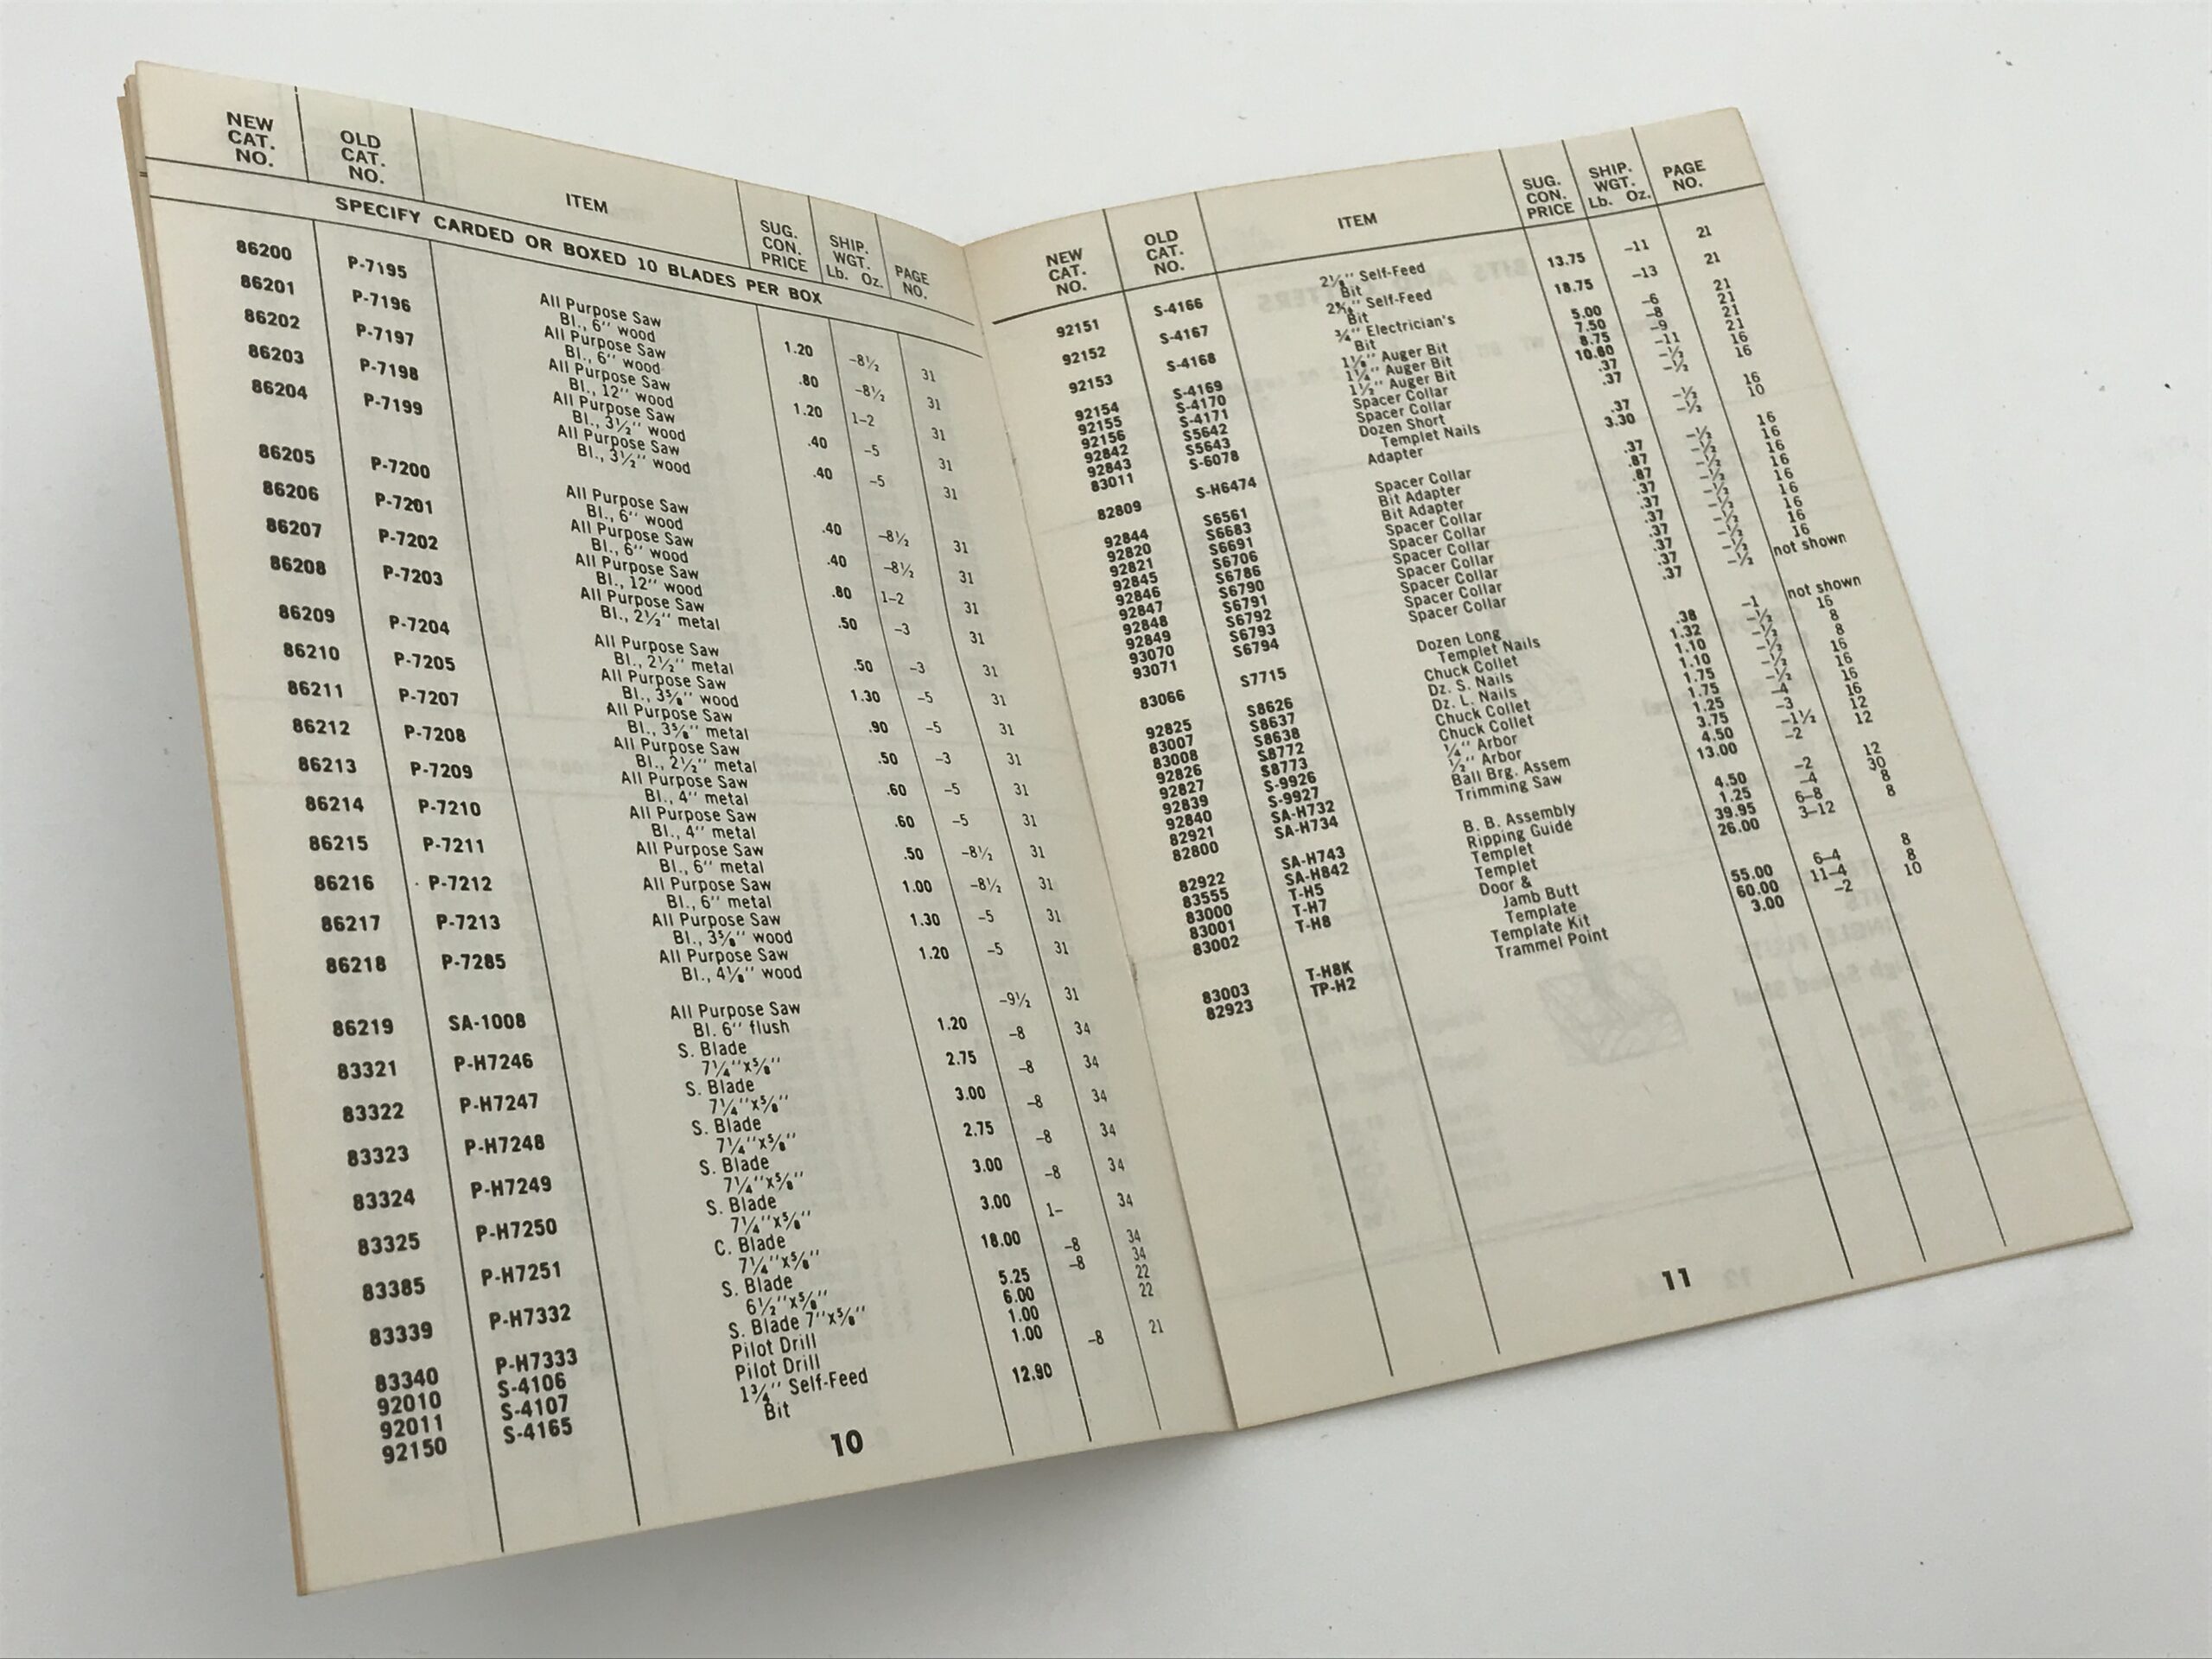 NEW CAT. NO. OLD CAT. NO. ITEM SUG. CON. PRICE SHIP. WGT. Lb. Oz. PAGE NO.
SPECIFY CARDED OR BOXED 10 BLADES PER BOX
86200 P-7195 All Purpose Saw
Bl., 6'' wood 1.20 -8½ 31
86201 P-7196 All Purpose Saw
Bl., 6'' wood .80 -8½ 31
86202 P-7197 All Purpose Saw
Bl., 12'' wood 1.20 1-2 31
86203 P-7198 All Purpose Saw
Bl., 3½'' wood .40 -5 31
86204 P-7199 All Purpose Saw
Bl., 3½'' wood .40 -5 31
86205 P-7200 All Purpose Saw
Bl., 6'' wood .40 -8½ 31
86206 P-7201 All Purpose Saw
Bl., 6'' wood .40 -8½ 31
86207 P-7202 All Purpose Saw
Bl., 12'' wood .80 1-2 31
86208 P-7203 All Purpose Saw
Bl., 2½'' metal .50 -3 31
86209 P-7204 All Purpose Saw
Bl., 2½'' metal .50 -3 31
86210 P-7205 All Purpose Saw
Bl., 3⅝'' wood 1.30 -5 31
86211 P-7207 All Purpose Saw
Bl., 3⅝'' metal .90 -5 31
86212 P-7208 All Purpose Saw
Bl., 2½'' metal .50 -3 31
86213 P-7209 All Purpose Saw
Bl., 4'' metal .60 -5 31
86214 P-7210 All Purpose Saw
Bl., 4'' metal .60 -5 31
86215 P-7211 All Purpose Saw
Bl., 6'' metal .50 -8½ 31
86216 P-7212 All Purpose Saw
Bl., 6'' metal 1.00 -8½ 31
86217 P-7213 All Purpose Saw
Bl., 3⅝'' wood 1.30 -5 31
86218 P-7285 All Purpose Saw
Bl., 4⅛'' wood 1.20 -5 31
86219 SA-1008 All Purpose Saw
Bl. 6'' flush 1.20 -9½ 31
83321 P-H7246 S. Blade
7¼''x⅝'' 2.75 -8 34
83322 P-H7247 S. Blade
7¼''x⅝'' 3.00 -8 34
83323 P-H7248 S. Blade
7¼''x⅝'' 2.75 -8 34
83324 P-H7249 S. Blade
7¼''x⅝'' 3.00 -8 34
83325 P-H7250 S. Blade
7¼''x⅝'' 3.00 -8 34
83385 P-H7251 C. Blade
7¼''x⅝'' 18.00 1- 34
83339 P-H7332 S. Blade
6½''x⅝'' 5.25 -8 34
83340 P-H7333 S. Blade 7''x⅝'' 6.00 -8 34
92010 S-4106 Pilot Drill 1.00 22
92011 S-4107 Pilot Drill 1.00 22
92150 S-4165 1¾'' Self-Feed
Bit 12.90 -8 21
10
NEW CAT. NO. OLD CAT. NO. ITEM SUG. CON. PRICE SHIP. WGT. Lb. Oz. PAGE NO.
92151 S-4166 2⅛'' Self-Feed
Bit 13.75 -11 21
92152 S-4167 29/16'' Self-Feed
Bit 18.75 -13 21
92153 S-4168 ¾'' Electrician's
Bit 5.00 -6 21
92154 S-4169 1⅛'' Auger Bit 7.50 -8 21
92155 S-4170 1¼'' Auger Bit 8.75 -9 21
92156 S-4171 1½'' Auger Bit 10.80 -11 21
92842 S5642 Spacer Collar .37 -½ 16
92843 S5643 Spacer Collar .37 -½ 16
83011 S-6078 Dozen Short
Templet Nails .37 -½ 16
82809 S-H6474 Adapter 3.30 -½ 10
92844 S6561 Spacer Collar .37 -½ 16
92820 S6683 Bit Adapter .87 -½ 16
92821 S6691 Bit Adapter .87 -½ 16
92845 S6706 Spacer Collar .37 -½ 16
92846 S6786 Spacer Collar .37 -½ 16
92847 S6790 Spacer Collar .37 -½ 16
92848 S6791 Spacer Collar .37 -½ 16
92849 S6792 Spacer Collar .37 -½ 16
93070 S6793 Spacer Collar .37 -½ 16
93071 S6794 Spacer Collar .37 -½ not shown
83066 S7715 Dozen Long
Templet Nails .38 -1 not shown
92825 S8626 Chuck Collet 1.32 -½ 16
83007 S8637 Dz. S. Nails 1.10 -½ 8
83008 S8638 Dz. L. Nails 1.10 -½ 8
92826 S8772 Chuck Collet 1.75 -½ 16
92827 S8773 Chuck Collet 1.75 -½ 16
92839 S-9926 ¼'' Arbor 1.25 -4 16
92840 S-9927 ½'' Arbor 3.75 -3 16
82921 SA-H732 Ball Brg. Assem 4.50 -1½ 12
82800 SA-H734 Trimming Saw 13.00 -2 12
82922 SA-H743 B. B. Assembly 4.50 -2 12
83555 SA-H842 Ripping Guide 1.25 -4 30
83000 T-H5 Templet 39.95 6-8 8
83001 T-H7 Templet 26.00 3-12 8
83002 T-H8 Door &
Jamb Butt
Template 55.00 6-4 8
83003 T-H8K Template Kit 60.00 11-4 8
82923 TP-H2 Trammel Point 3.00 -2 10
11